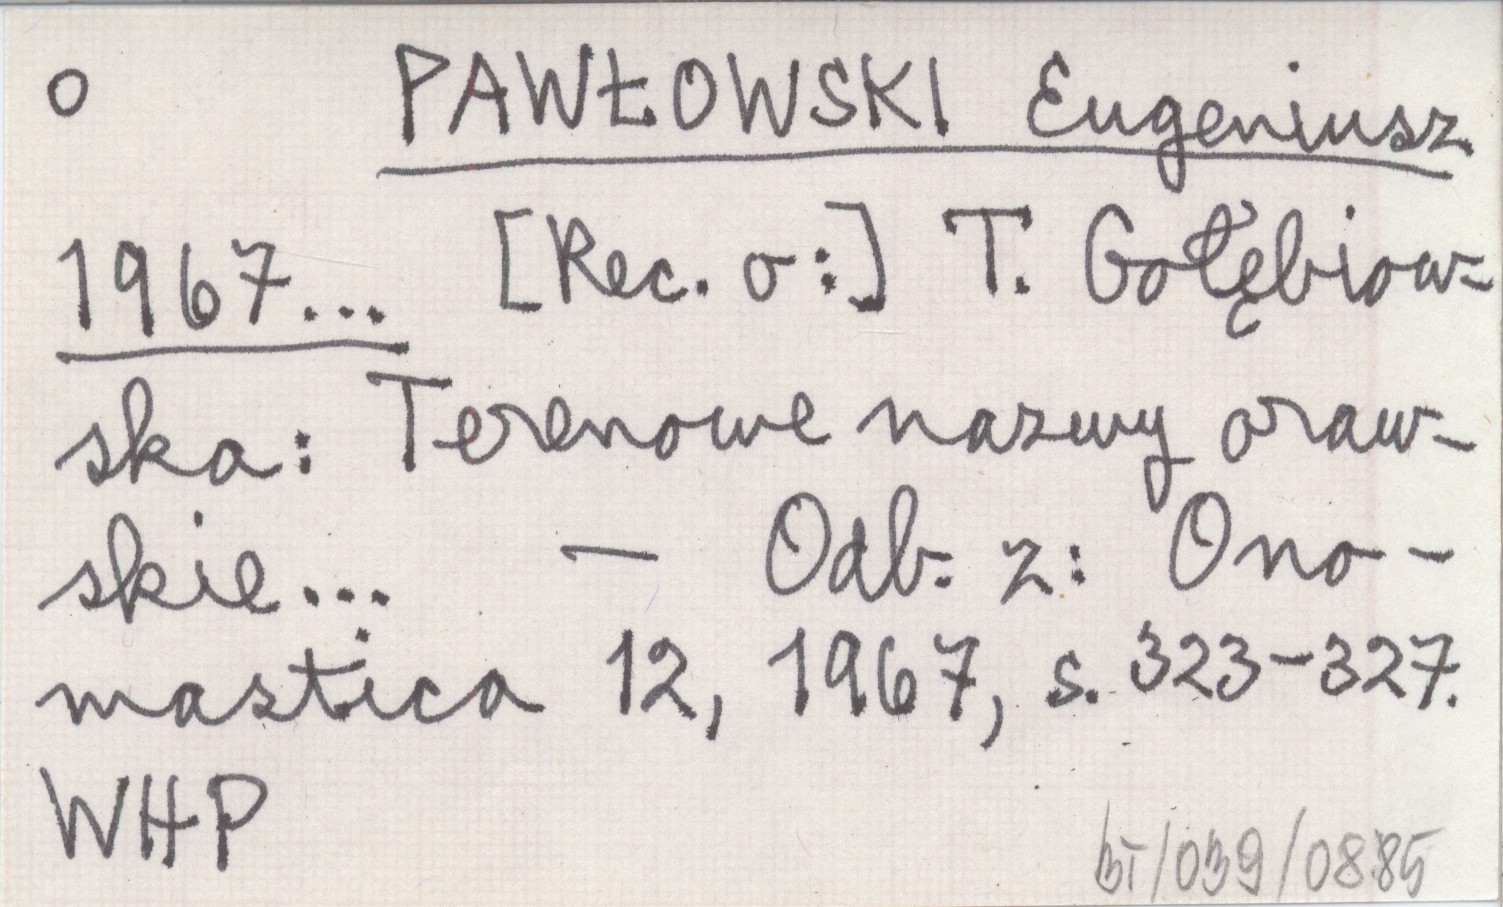 o PAWŁOWSKI Eugeniusz
1967... [Rec. o:] T. Gołębiow-
ska: Terenowe nazwy oraw-
skie... — Odb. z: Ono-
mastica 12, 1967, s. 323-327.
WHP
/039/0885